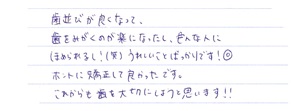 歯並びが良くなって、
歯をみがくのが楽になったし、色んな人に
ほめられるし!(笑) うれしいことばっかりです!☺
ホントに矯正して良かったです。
これからも歯を大切にしようと思います!!